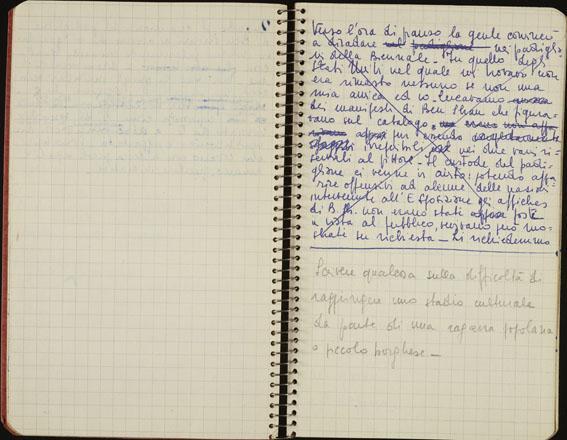 Verso l'ora di pranzo la gente cominciò
a diradare nel padiglione nei padiglio
ni della Biennale. In quello degli
Stati Uniti nel quale mi trovavo non
era rimasto nessuno se non una
mia amica ed io. Cercavamo
dei manifesti di Ben Shan che figura-
vano sul catalogo, ma erano non
pur essendo
nei due vani ri-
servati al pittore. Il custode del padi-
glione ci venne in aiuto: potendo appa-
rire offensivi ad alcune delle nazioni
intervenute all'Esposizione gli affiches
di B. Sh. non erano stati posti
a vista al pubblico, venivano però mo-
strati su richiesta — Li richiedemmo
Scrivere qualcosa sulla difficoltà di
raggiungere uno stadio culturale
da parte di una ragazza popolana
o piccolo borghese —